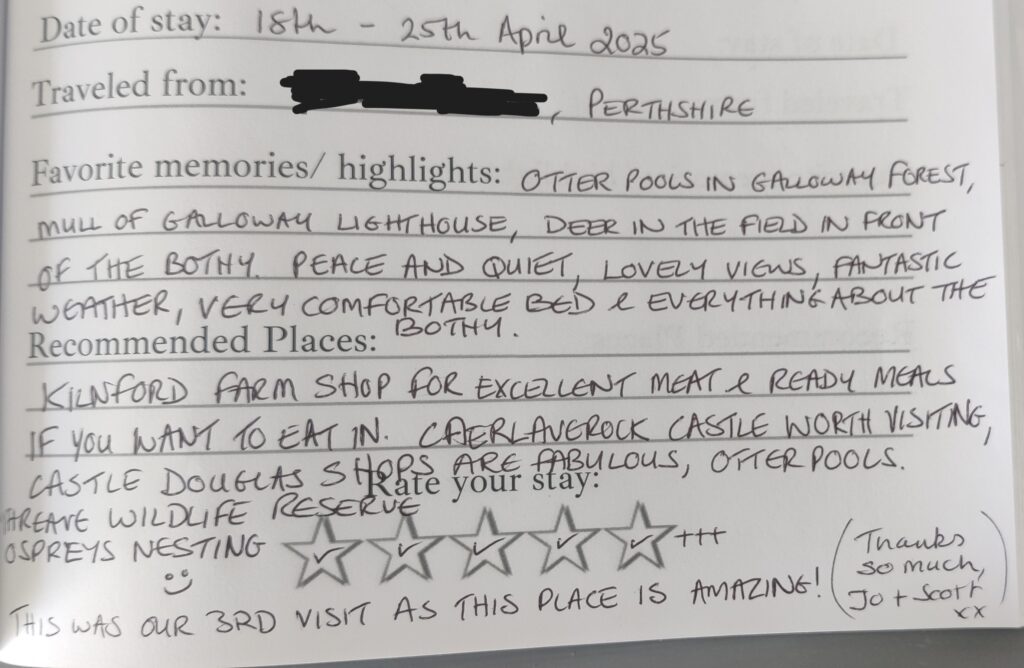 Date of stay: 18th - 25th April 2025
Traveled from: , PERTHSHIRE
Favorite memories/ highlights: OTTER POOLS IN GALLOWAY FOREST,
MULL OF GALLOWAY LIGHTHOUSE, DEER IN THE FIELD IN FRONT
OF THE BOTHY. PEACE AND QUIET, LOVELY VIEWS, FANTASTIC
WEATHER, VERY COMFORTABLE BED & EVERYTHING ABOUT THE
BOTHY.
Recommended Places:
KILNFORD FARM SHOP FOR EXCELLENT MEAT & READY MEALS
IF YOU WANT TO EAT IN. CAERLAVEROCK CASTLE WORTH VISITING,
CASTLE DOUGLAS SHOPS ARE FABULOUS, OTTER POOLS.
Rate your stay:
THREAVE WILDLIFE RESERVE
OSPREYS NESTING
+++
THIS WAS OUR 3RD VISIT AS THIS PLACE IS AMAZING!
(Thanks
so much,
Jo + Scott
xx)